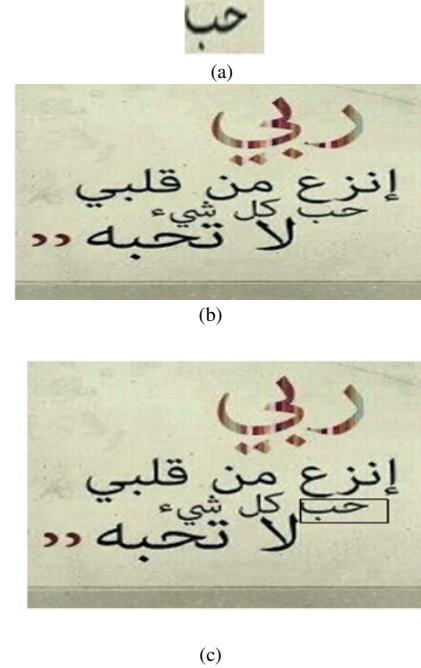 حب
(a)
ربي
إنزع من قلبي
حب كل شيء
لا تحبه ,,
(b)
ربي
إنزع من قلبي
حب كل شيء
لا تحبه ,,
(c)